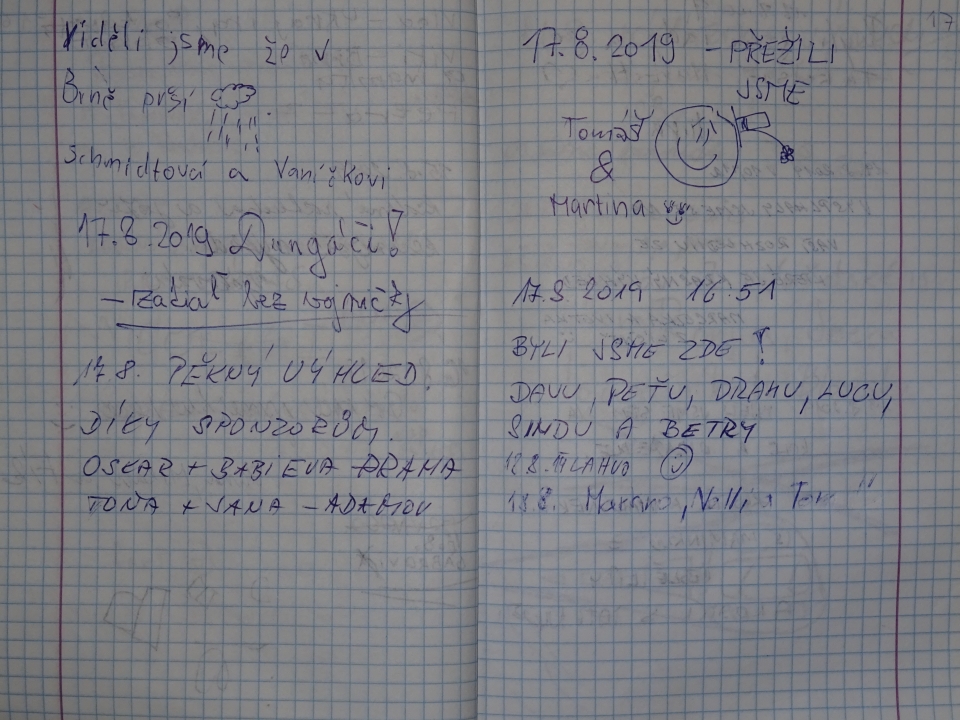 Viděli jsme že v
Brně prší
Schmidtová a Vaníčkovi
17.8.2019 Dungáči!
- začal bez vojničky
17.8. PĚKNÝ VÝHLED.
DÍKY SPONZORŮM.
OSKAR + BABI EVA PRAHA
TOŇA + JANA - ADAMOV
17
17.8.2019 - PŘEŽILI
JSME
Tomáš
&
Martina
17.8.2019 16:51
BYLI JSME ZDE!
DAVU, PEŤU, DRAHU, LUCU,
SIMDU A BETRY
18.8.